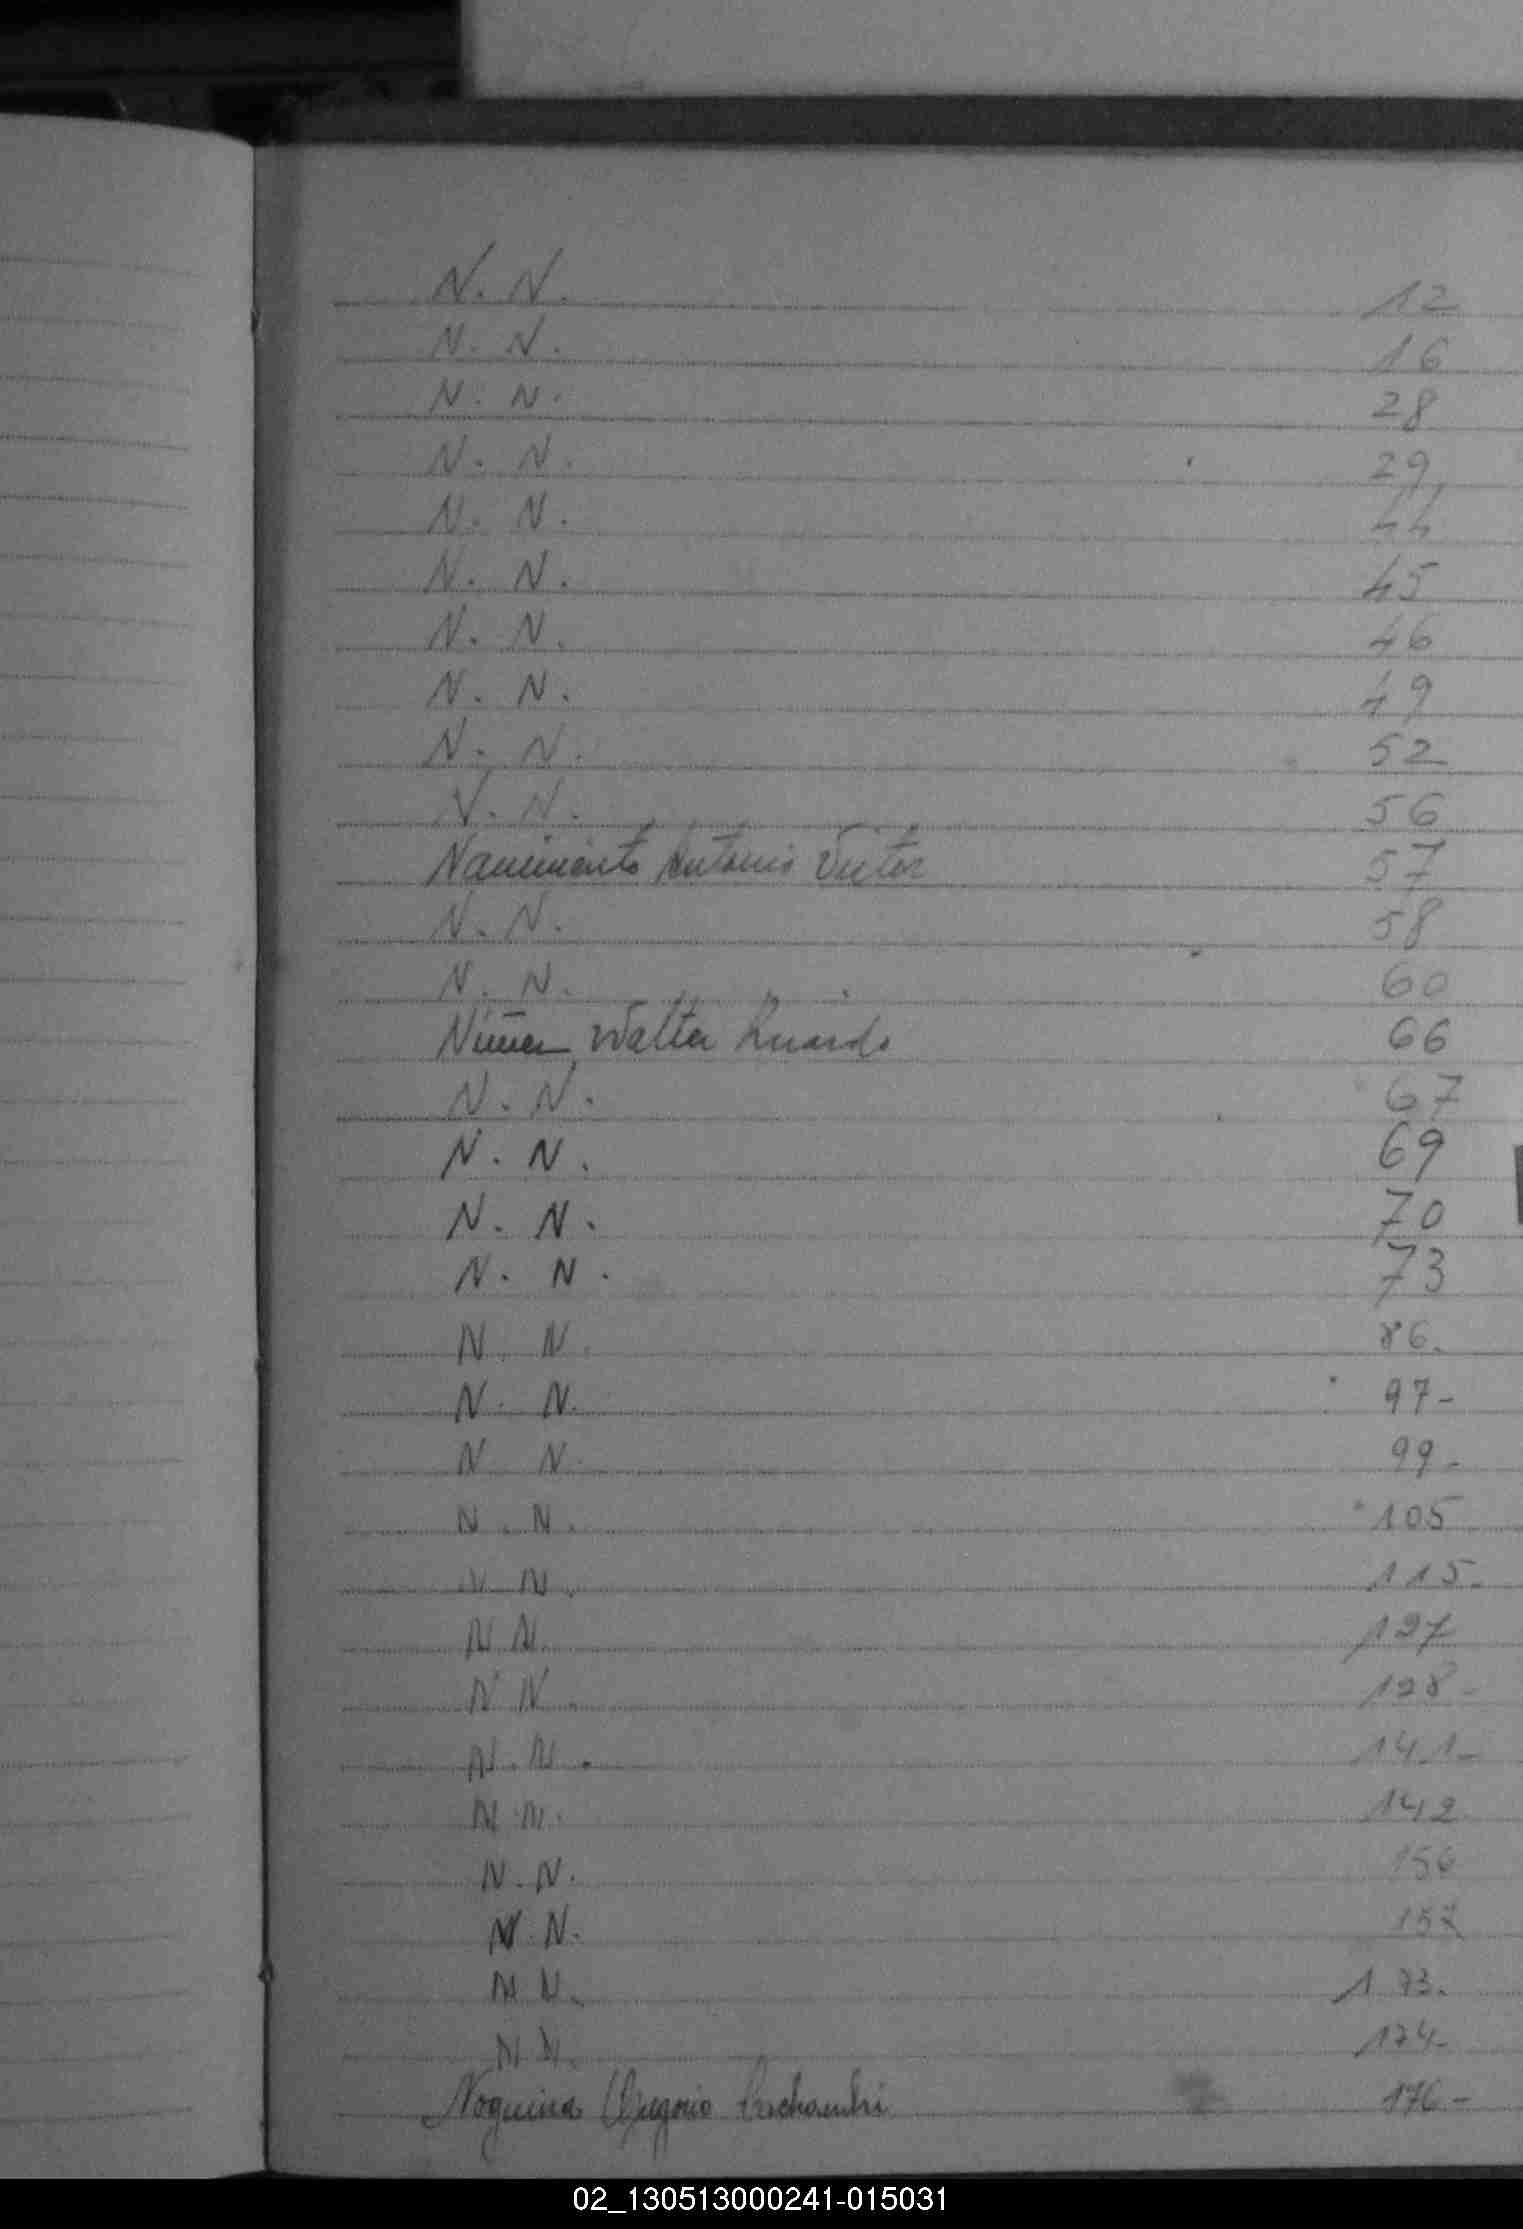 N. N. 12
N. N. 16
N. N. 28
N. N. 29
N. N. 44
N. N. 45
N. N. 46
N. N. 49
N. N. 52
N. N. 56
Antonio Victor 57
N. N. 58
N. N. 60
Walter 66
N. N. 67
N. N. 69
N. N. 70
N. N. 73
N. N. 86.
N. N. 97-
N. N. 99-
N. N. 105
N N. 115.
N N. 127
N N. 128-
N. N. 141-
N. N. 142
N. N. 156
N. N. 157
N N. 173.
N N. 174-
Noguina Gregorio 176-
02_130513000241-015031